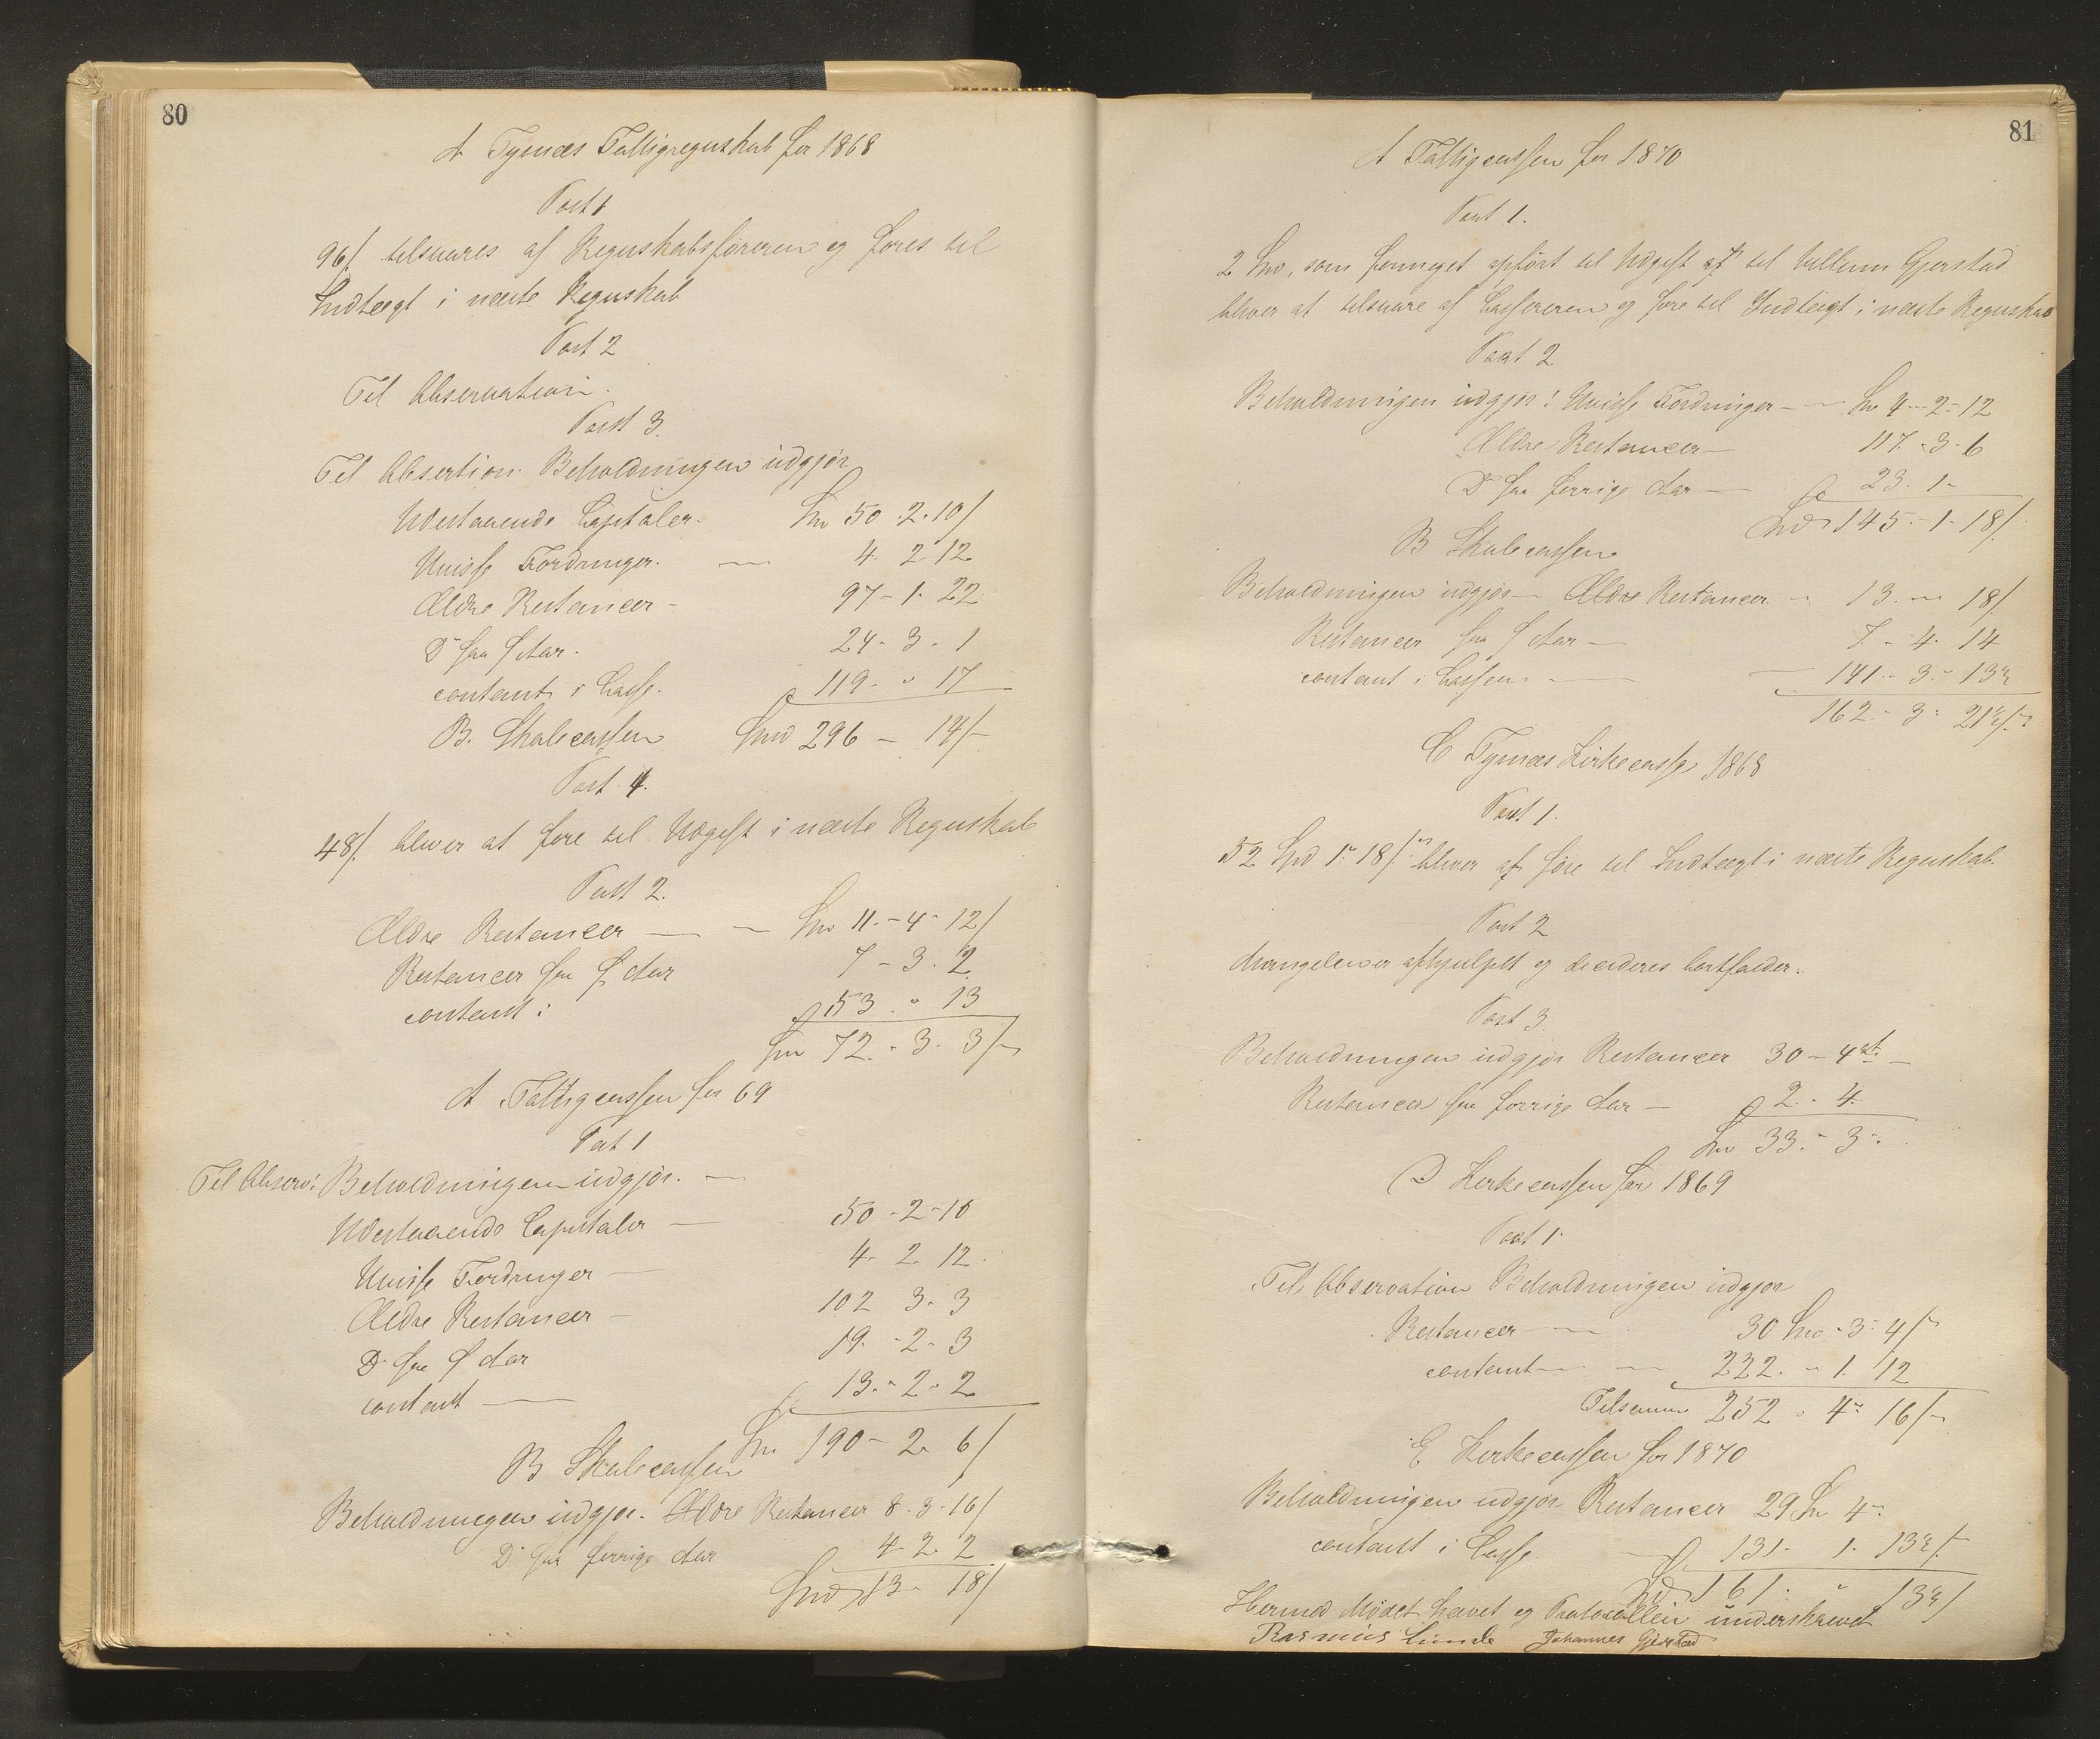 80
A Tysnæs Fattigregnskab for 1868
Post 1
96/ tilsvares af Regnskabsføreren og føres til
Indtægt i næste Regnskab
Post 2
Til Observation.
Post 3.
Til Obsertion. Beholdningen udgjør
Udestaaende Capitaler. Spd 50 . 2 . 10/
Uvisse Fordringer. — 4 - 2 12
Ældre Restancer - 97 - 1 - 22
Do fra f Aar. 24 - 3 . 1
contant i Casse. 119 - " 17
B. Skolecassen Spd 296 — 14/-
Post 4.
48/ bliver at føre til Udgift i næste Regnskab
Post 2.
Ældre Restancer — — Spd 11. - 4 - 12/
Restancer fra f Aar 7 - 3 . 2
contant : 53 . " 13
Spd 72. - 3 - 3/-
A Fattigcassen for 69
Post 1
Til Observ: Beholdningen udgjør. —
Udestaaende Capitaler — 50 - 2 - 10
Uvisse Fordringer — 4 - 2 12.
Ældre Restancer — 102 3 - 3
Do fra f Aar 19. - 2 - 3
contant — 13. - 2 - 2
Spd 190 - 2 6/
B Skolecassen
Beholdningen udgjør. Ældre Restancer 8 . 3 - 16/
Do fra forrige Aar 4 2 . 2
Spd 13 - 18/
81
A Fattigcassen for 1870
Post 1.
2 Spd, som formeget opført til Udgift af til Villum Gjerstad
bliver at tilsvare af Cassereren og føre til Indtægt i næste Regnskab
Post 2
Beholdningen udgjør: Uvisse Fordringer - — Spd 4 - 2 - 12
Ældre Restancer — 117 - 3 - 6
Do fra forrige Aar — 23 - 1 -
Spd 145 - 1 - 18/.
B Skolecassen
Beholdningen udgjør — Ældre Restancer - 13 . — 18/
Restancer fra f Aar — 7 - 4 - 14
contant i Cassen. — 141 - 3 - 13½
162 - 3 - 21½/-
C Tysnæs Kirkecasse 1868
Post 1.
52 Spd 1 " 18/ bliver at føre til Indtægt i næste Regnskab.
Post 2
Mangelen er afhjulpet og decideres bortfalder.
Post 3.
Beholdningen udgjør Restancer 30 - 4 —
Restancer fra forrige Aar — 2 . - 4.
Spd 33. - 3 -.
D Kirkecassen for 1869
Post 1
Til Observation Beholdningen udgjør
Restancer — 30 Spd - 3 - 4/
contant — — 222. - 1. 12
Tilsamm 252 . 4 - 16/-
E Kirkecassen for 1870
Beholdningen udgjør Restancer 29 Spd 4 -
contant i Casse. — 131 - 1. 13½/-
Spd 161 . " 13½/
Hermed Mødet hævet og Protocollen underskrevet
Rasmus Lunde Johannes Gjerstad